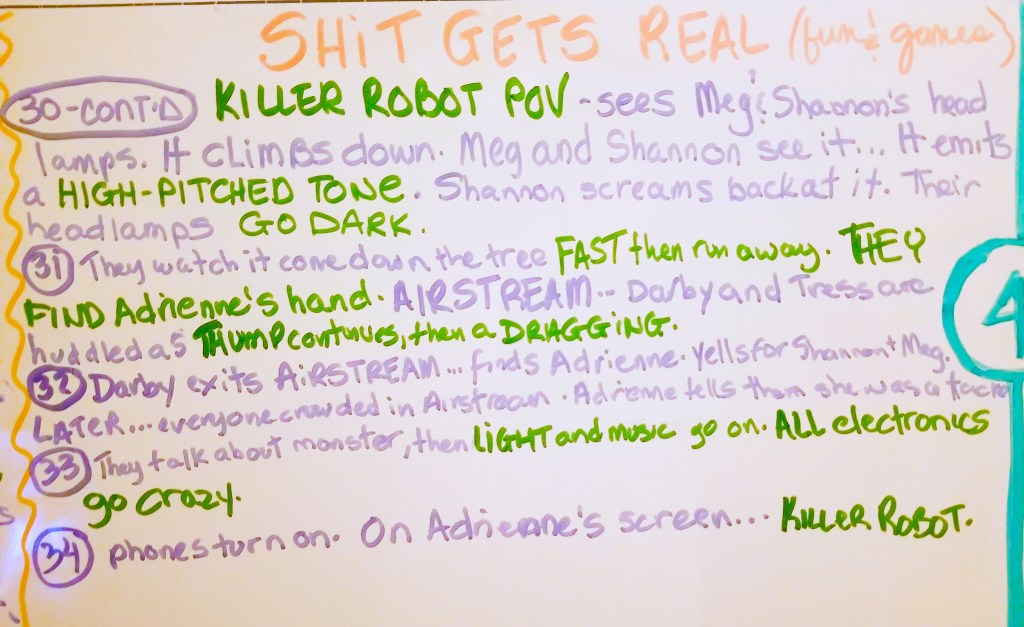 SHiT GETS REAL (fun & games)
30-CONT'D KILLER ROBOT POV - sees Meg & Shannon's head
lamps. It CLIMBS down. Meg and Shannon see it... It emits
a HIGH-PITCHED TONE. Shannon screams back at it. Their
headlamps GO DARK.
31 They watch it come down the tree FAST then run away. THEY
FIND Adrienne's hand. AIRSTREAM... Darby and Tress are
huddled as THUMP continues, then a DRAGGING.
32 Darby exits AiRSTREAM... finds Adrienne. Yells for Shannon + Meg.
LATER... everyone crowded in Airstream. Adrienne tells them she was a
33 They talk about monster, then LiGHT and music go on. ALL electronics
go crazy.
34 phones turn on. On Adrienne's screen... KiLLER ROBOT.
4